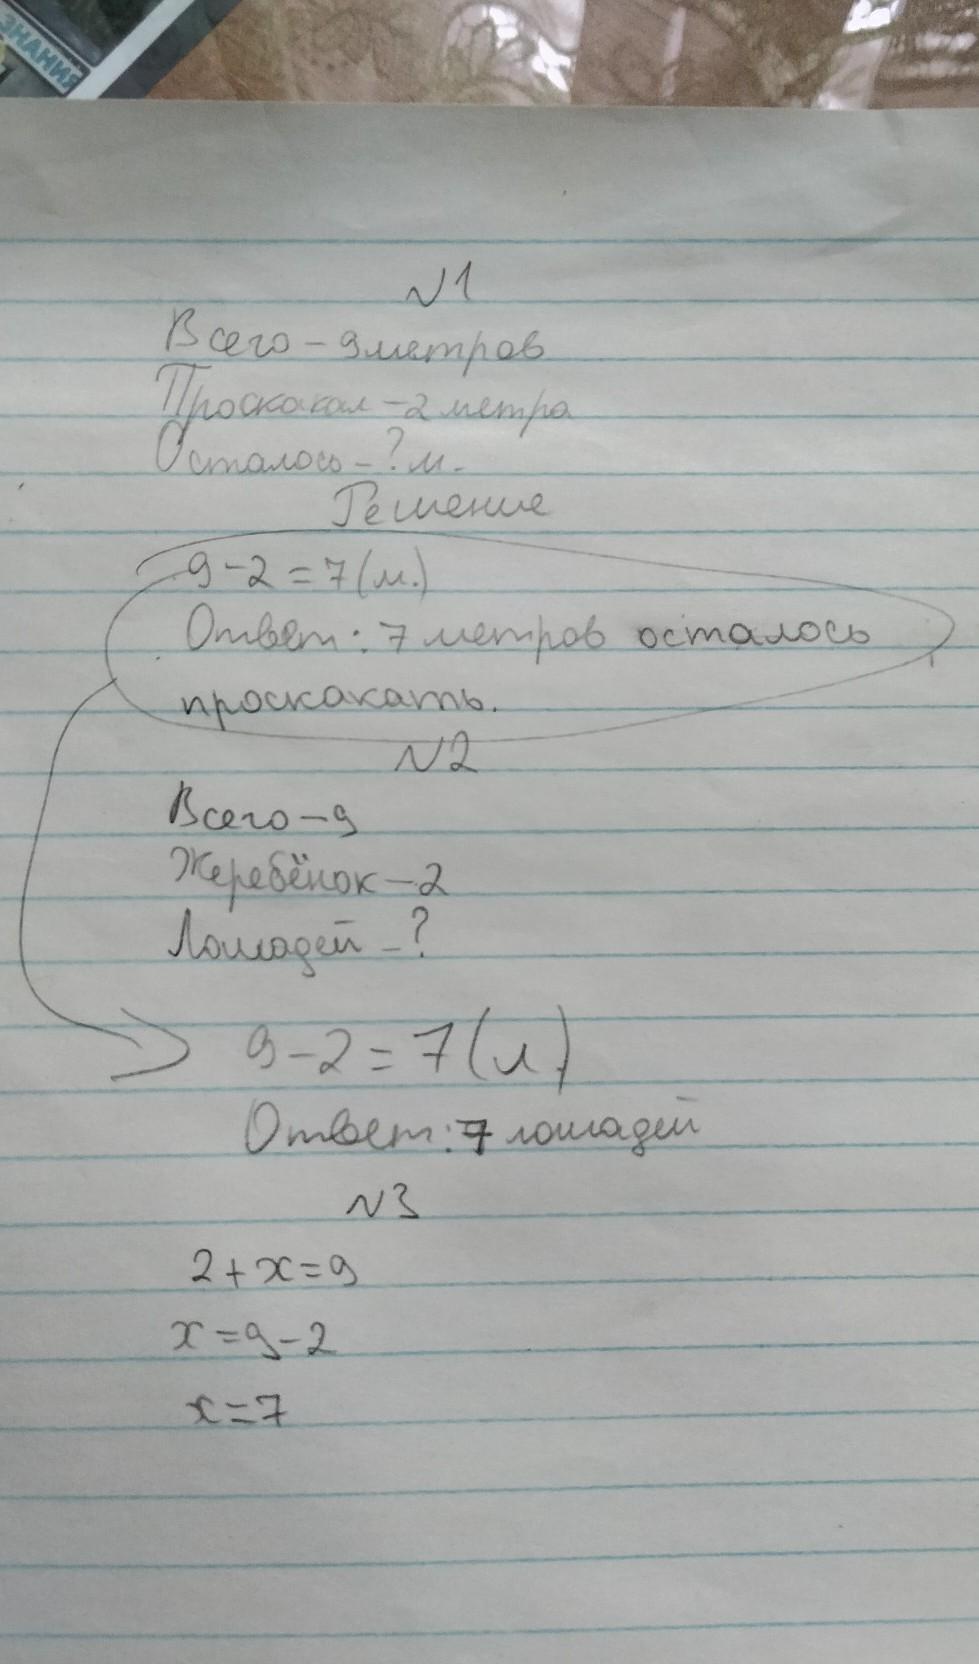 ЗНАНИЯ
№1
Всего - 9 метров
Проскакал - 2 метра
Осталось - ? м.
Решение
9 - 2 = 7 (м.)
Ответ: 7 метров осталось
проскакать.
№2
Всего - 9
Жеребёнок - 2
Лошадей - ?
9 - 2 = 7 (л.)
Ответ: 7 лошадей
№3
2 + x = 9
x = 9 - 2
x = 7